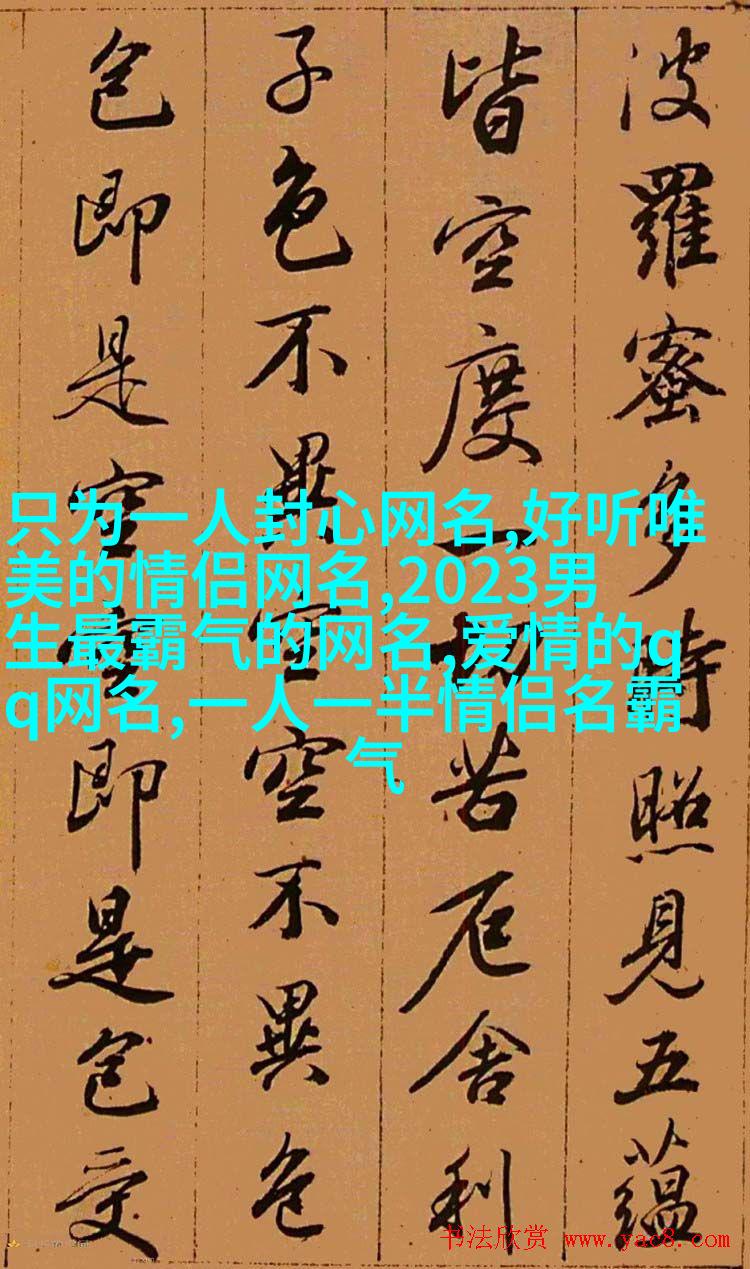 波羅蜜多時照見五蘊
皆空度一切苦厄舍利
子色不異空空不異色
色即是空空即是色受
只为一人封心网名,好听唯
美的情侣网名,2023男
生最霸气的网名,爱情的q
q网名,一人一半情侣名霸
气
书法欣赏 www.yac8.com